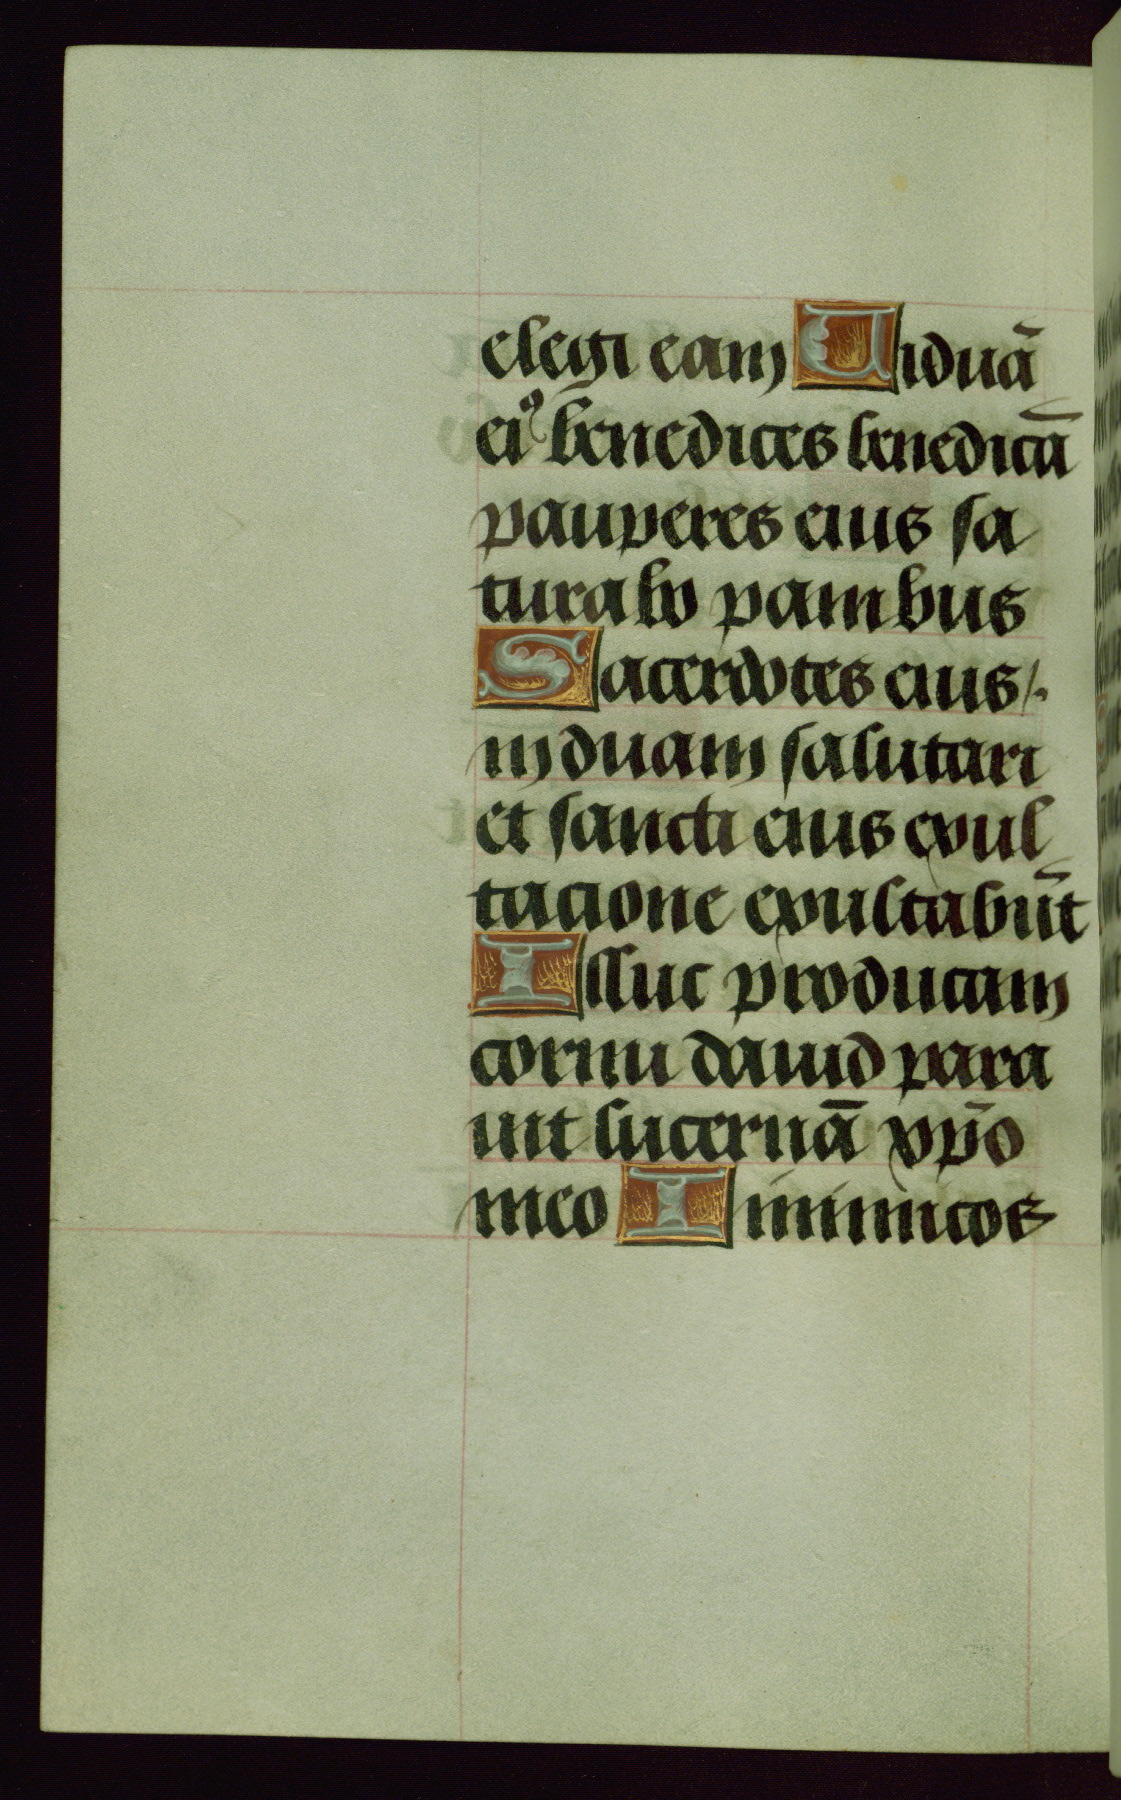 elegi eam Uiduā
eiꝰ benedicēs benedicā
pauperes eius sa
turabo panibus
Sacerdotes eius /.
induam salutari
et sancti eius exul
tacione exultabūt
Illuc producam
cornu dauid para
uit lucernā xp̄o
meo Inimicos